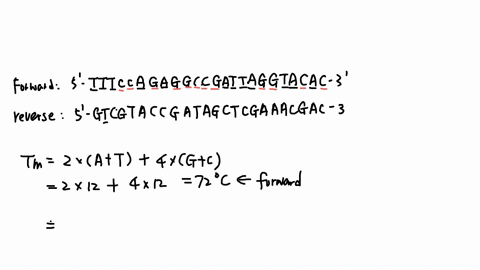 Forward: 5'-TTTCCAGAGGCCGATTAGGTACAC-3'
reverse: 5'-GTCGTACCGATAGCTCGAAACGAC-3
Tm = 2×(A+T) + 4×(G+C)
= 2×12 + 4×12 = 72°C ← forward
=